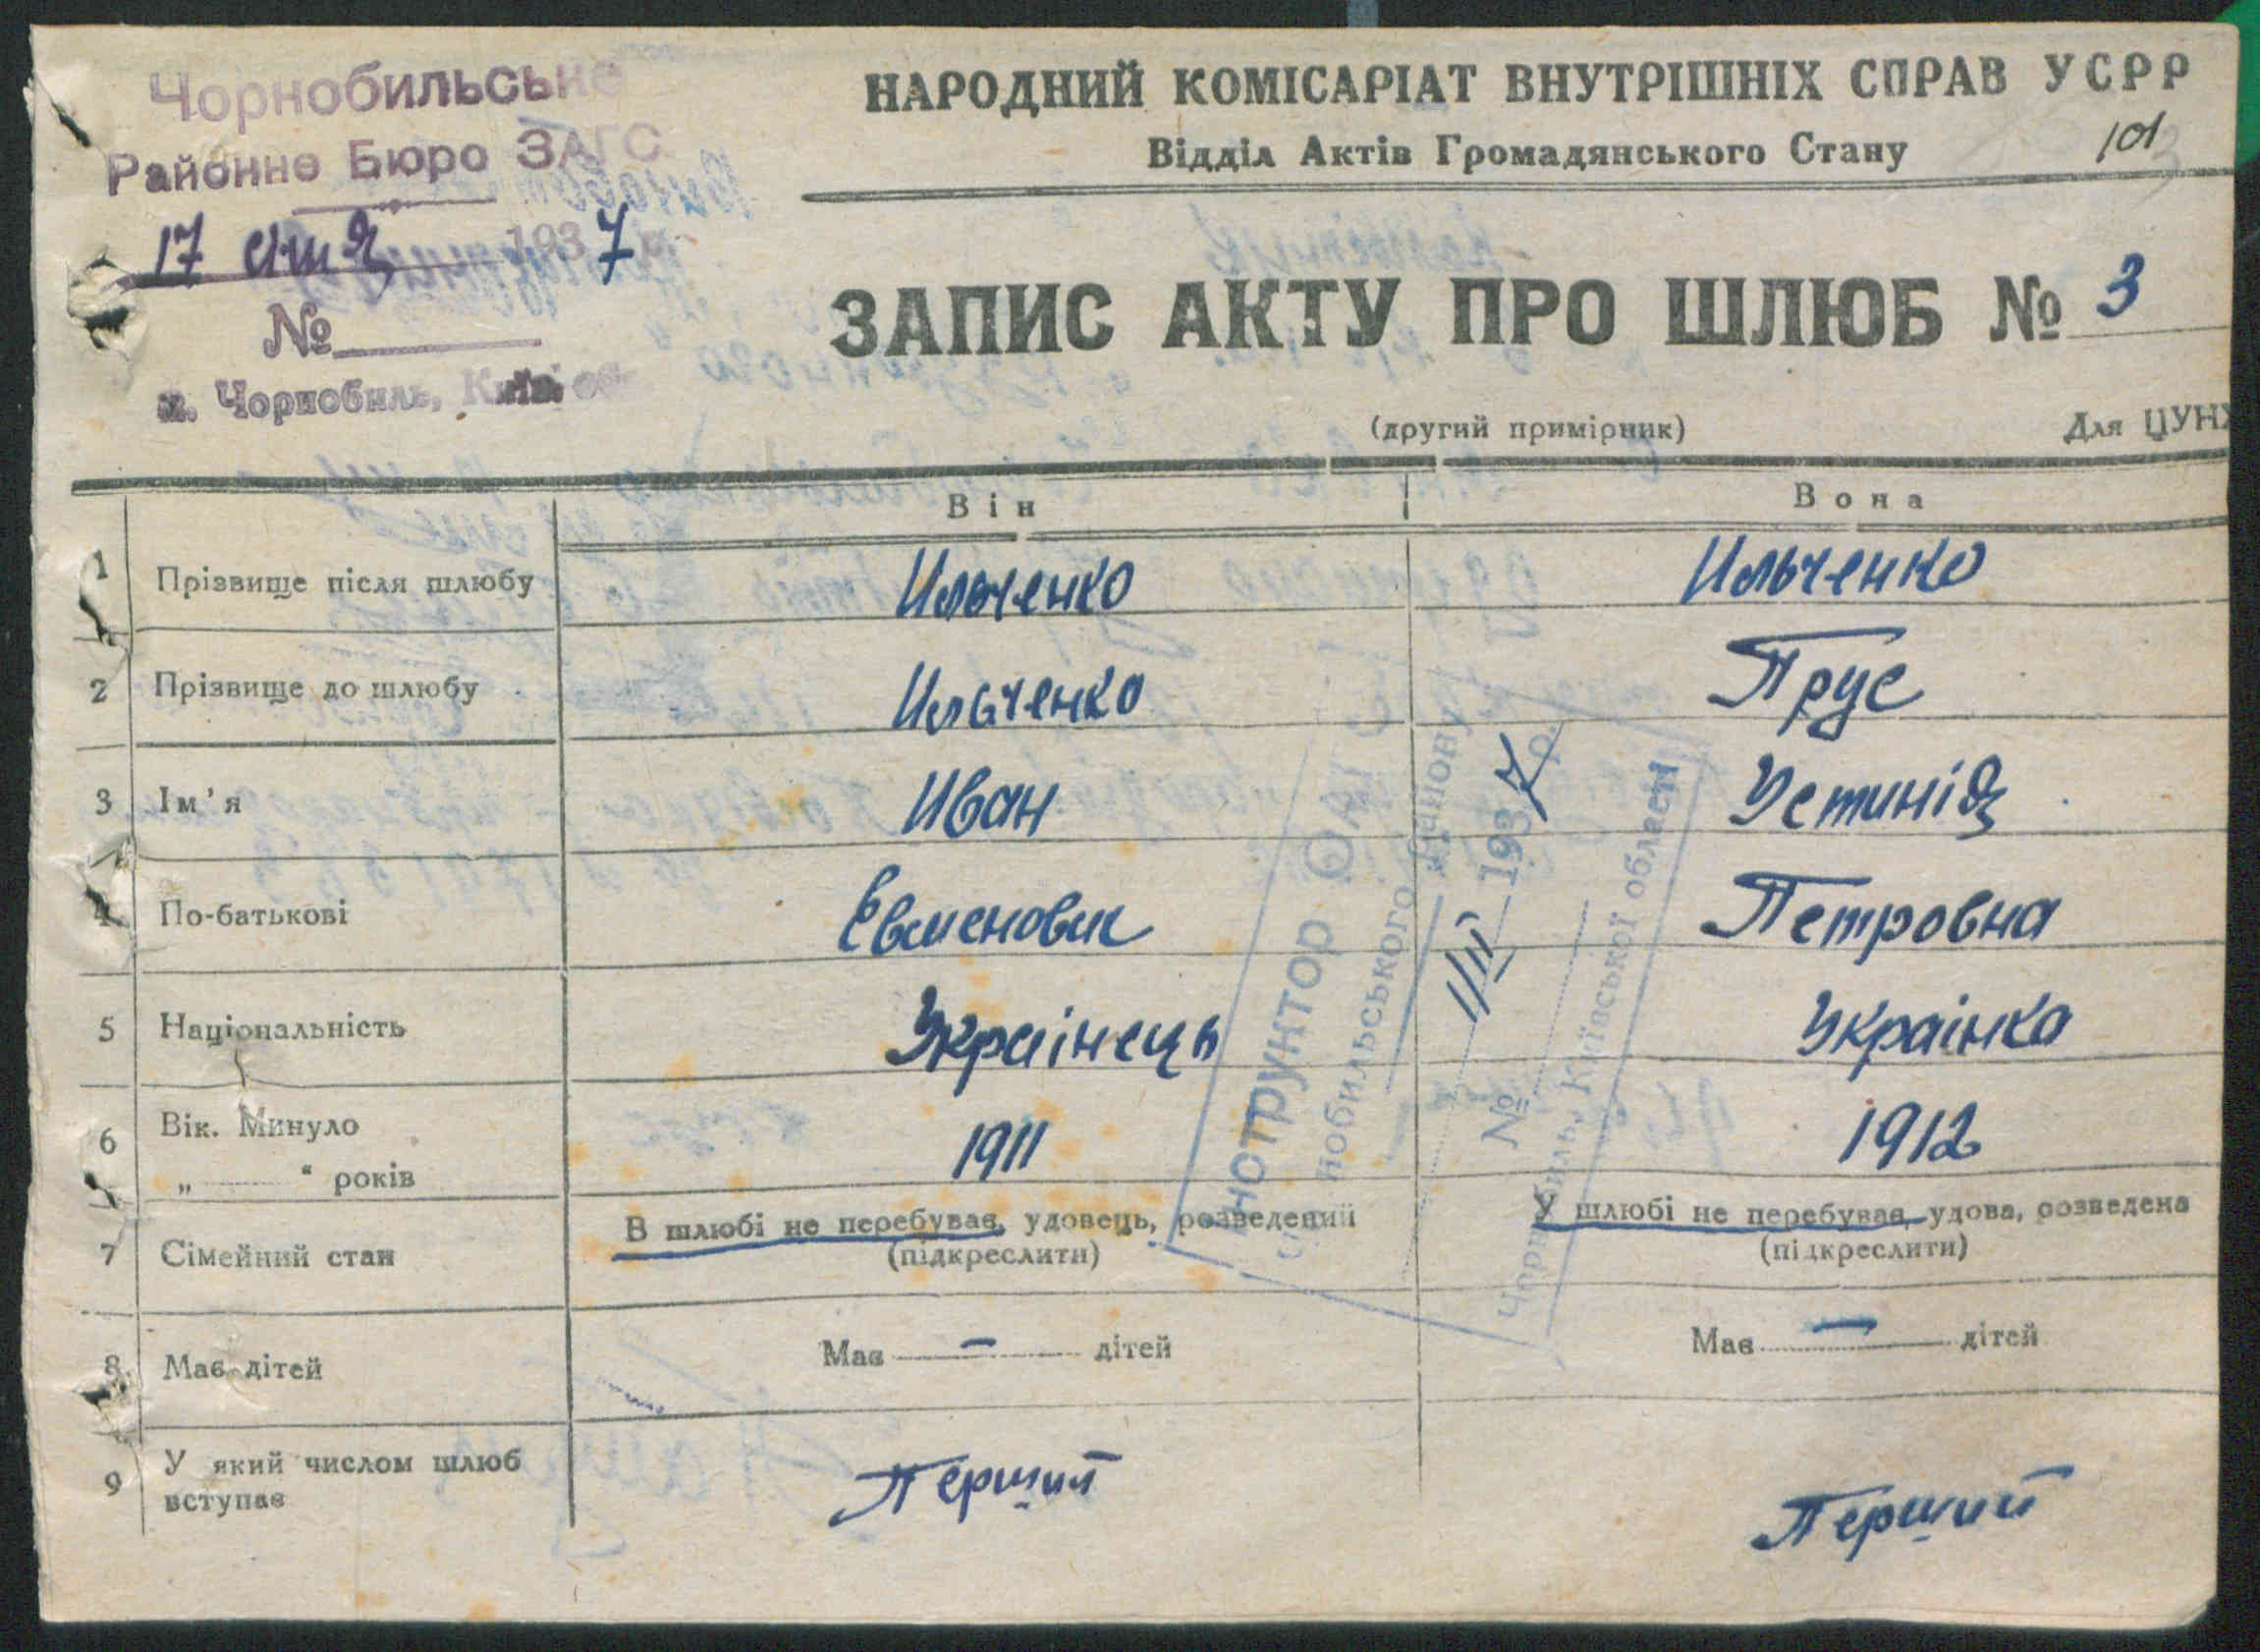 Чорнобильське
Районне Бюро ЗАГС
17 січня 1937 р.
№
м. Чорнобиль, Київ. обл.
НАРОДНИЙ КОМІСАРІАТ ВНУТРІШНІХ СПРАВ УСРР
Відділ Актів Громадянського Стану
101
ЗАПИС АКТУ ПРО ШЛЮБ № 3
(другий примірник) Для ЦУНХ
Він Вона
1 Прізвище після шлюбу Ильченко Ильченко
2 Прізвище до шлюбу Ильченко Прус
3 Ім'я Иван Устинія
4 По-батькові Евменович Петровна
5 Національність Украінець Украінка
6 Вік. Минуло 1911 1912
„ “ років
7 Сімейний стан В шлюбі не перебував, удовець, розведений У шлюбі не перебував, удова, розведена
(підкреслити) (підкреслити)
8 Має дітей Має — дітей Має — дітей
9 У який числом шлюб Перший Перший
вступає
Інструнтор
нобильського
1/III 1937 р.
№
Чорнобиль, Київської області